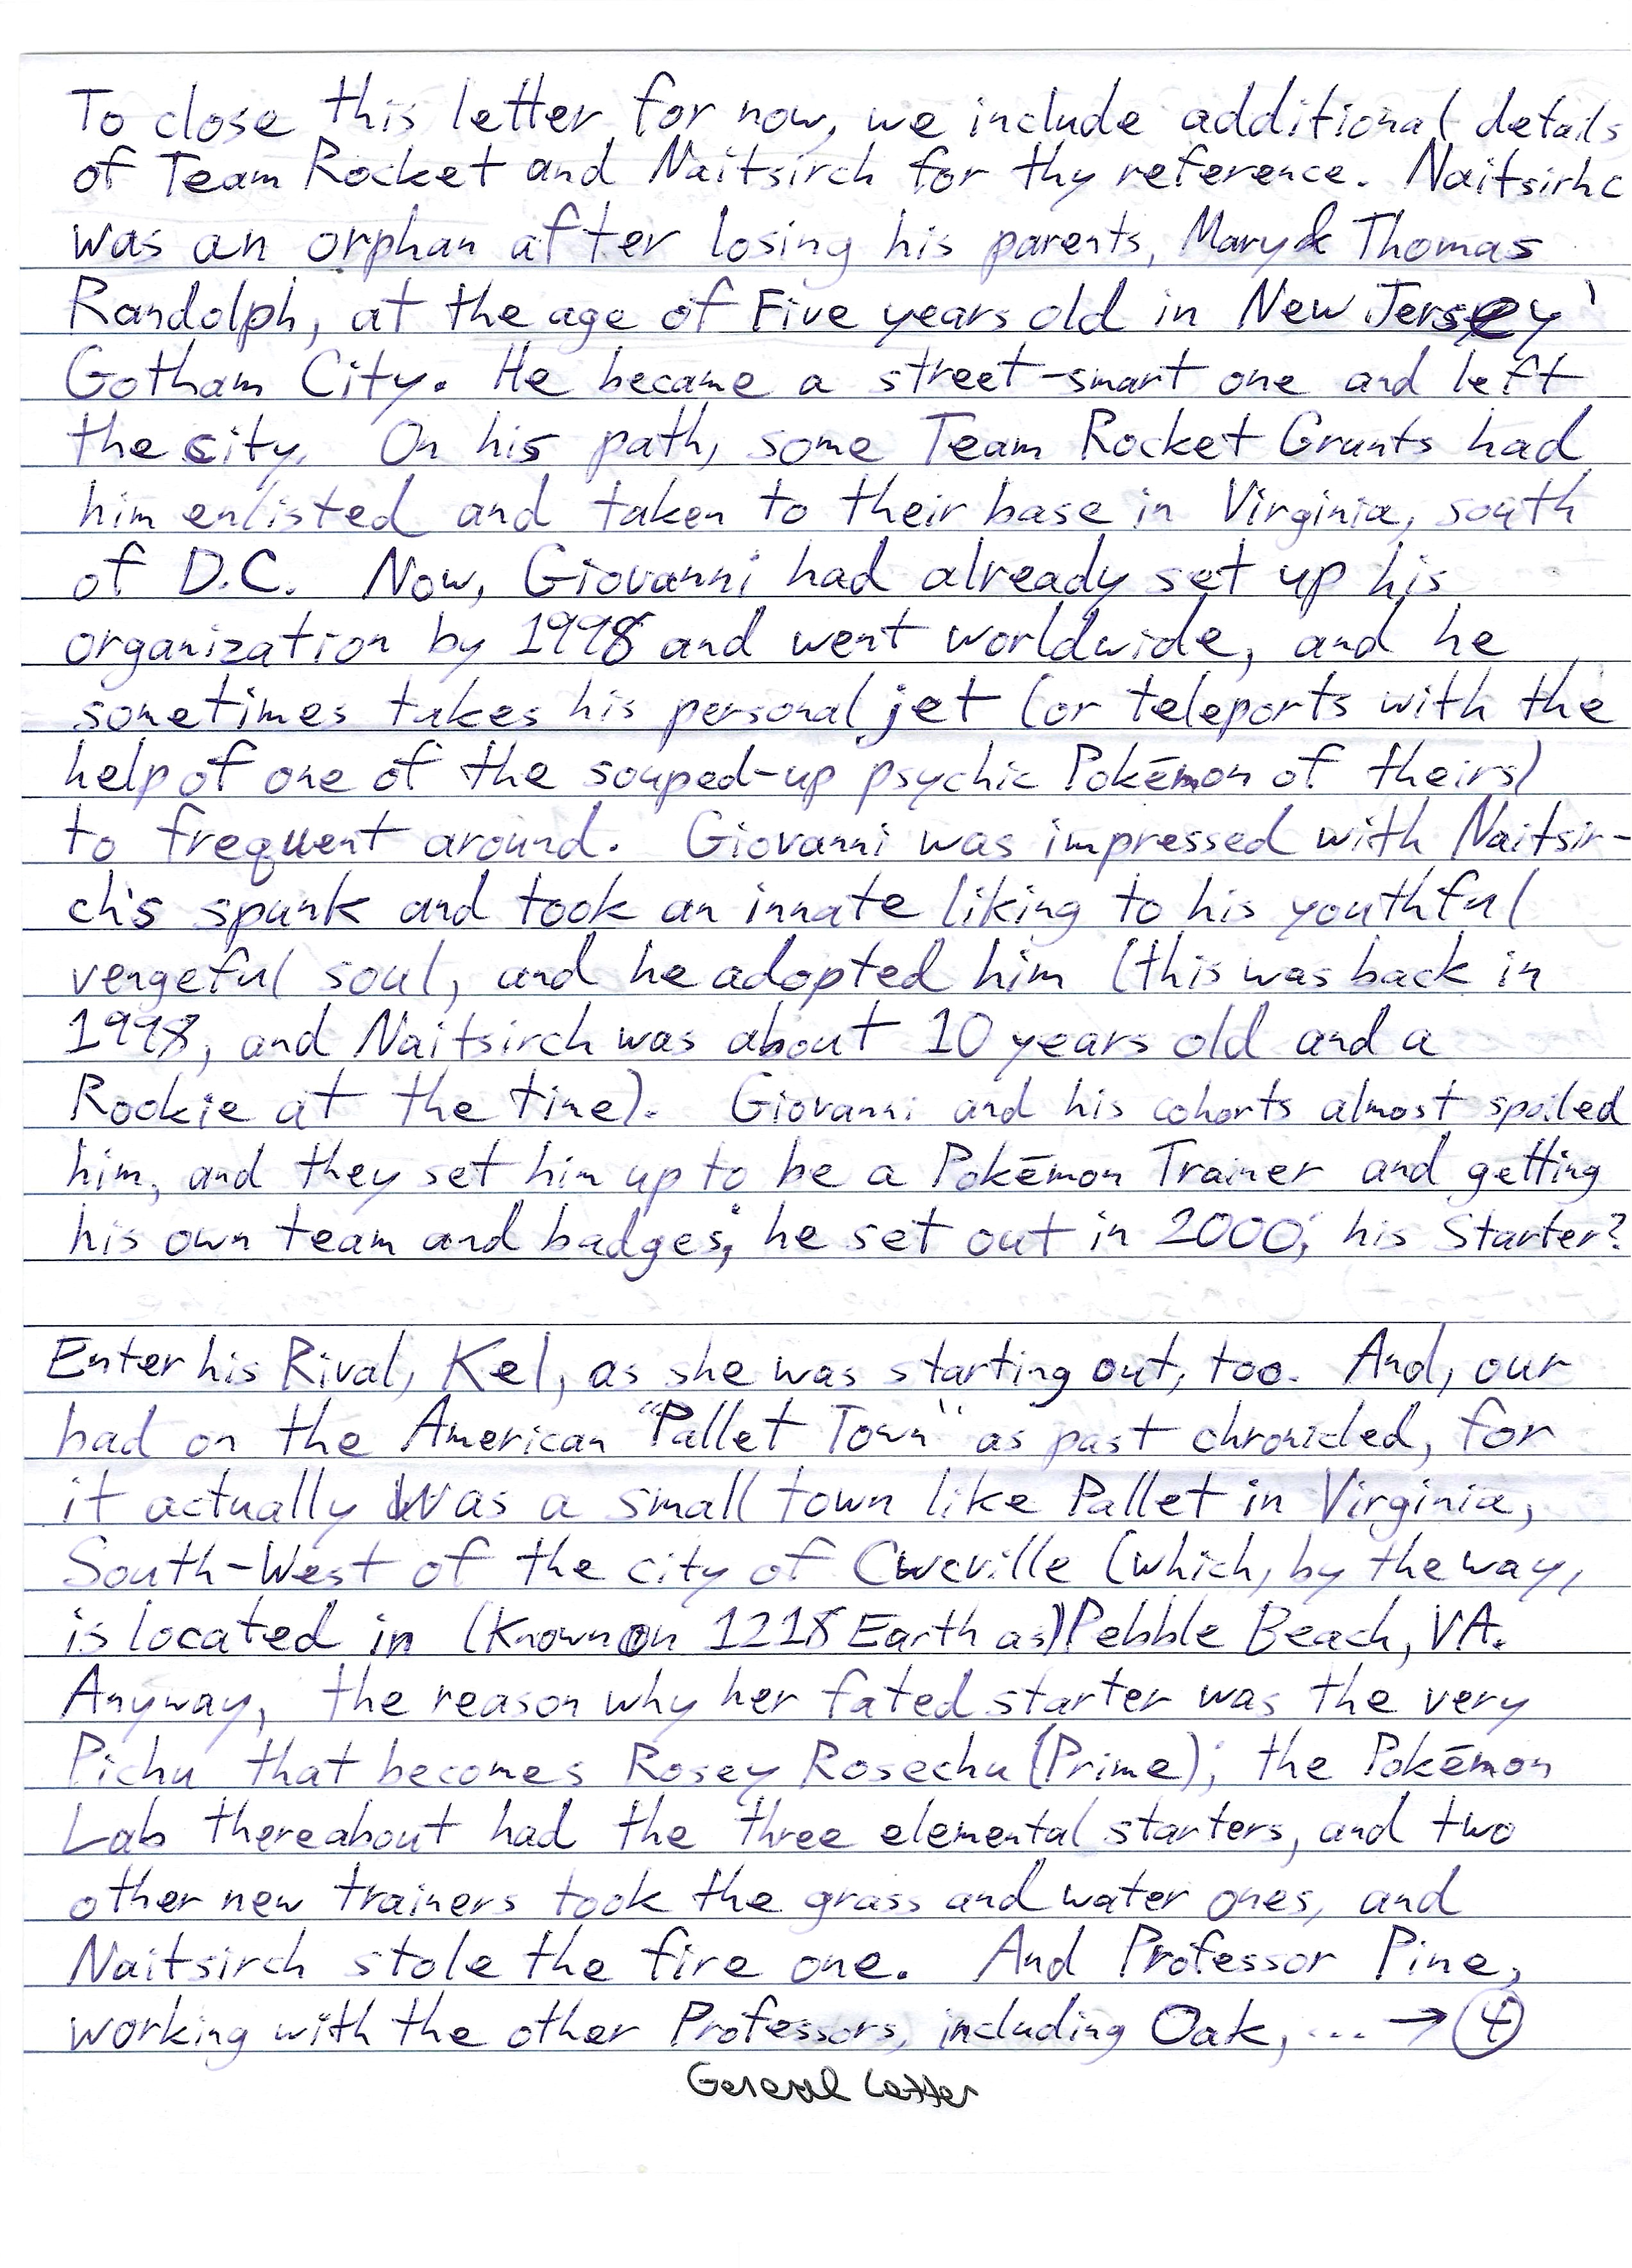 To close this letter for now, we include additional details
of Team Rocket and Naitsirch for thy reference. Naitsirhc
was an orphan after losing his parents, Mary & Thomas
Randolph, at the age of Five years old in New Jersey'
Gotham City. He became a street-smart one and left
the city. On his path, some Team Rocket Grunts had
him enlisted and taken to their base in Virginia, south
of D.C. Now, Giovanni had already set up his
organization by 1998 and went worldwide, and he
sometimes takes his personal jet (or teleports with the
help of one of the souped-up psychic Pokēmon of theirs)
to frequent around. Giovanni was impressed with Naitsir-
ch's spunk and took an innate liking to his youthful
vengeful soul, and he adopted him (this was back in
1998, and Naitsirch was about 10 years old and a
Rookie at the time). Giovanni and his cohorts almost spoiled
him, and they set him up to be a Pokēmon Trainer and getting
his own team and badges; he set out in 2000; his Starter?
Enter his Rival, Kel, as she was starting out, too. And, our
bad on the American "Pallet Town" as past chronicled, for
it actually was a small town like Pallet in Virginia,
South-West of the city of Cwcville (which, by the way,
is located in (Known on 1218 Earth as) Pebble Beach, VA.
Anyway, the reason why her fated starter was the very
Pichu that becomes Rosey Rosechu (Prime); the Pokēmon
Lab thereabout had the three elemental starters, and two
other new trainers took the grass and water ones, and
Naitsirch stole the fire one. And Professor Pine,
working with the other Professors, including Oak, ... → 4
General Letter